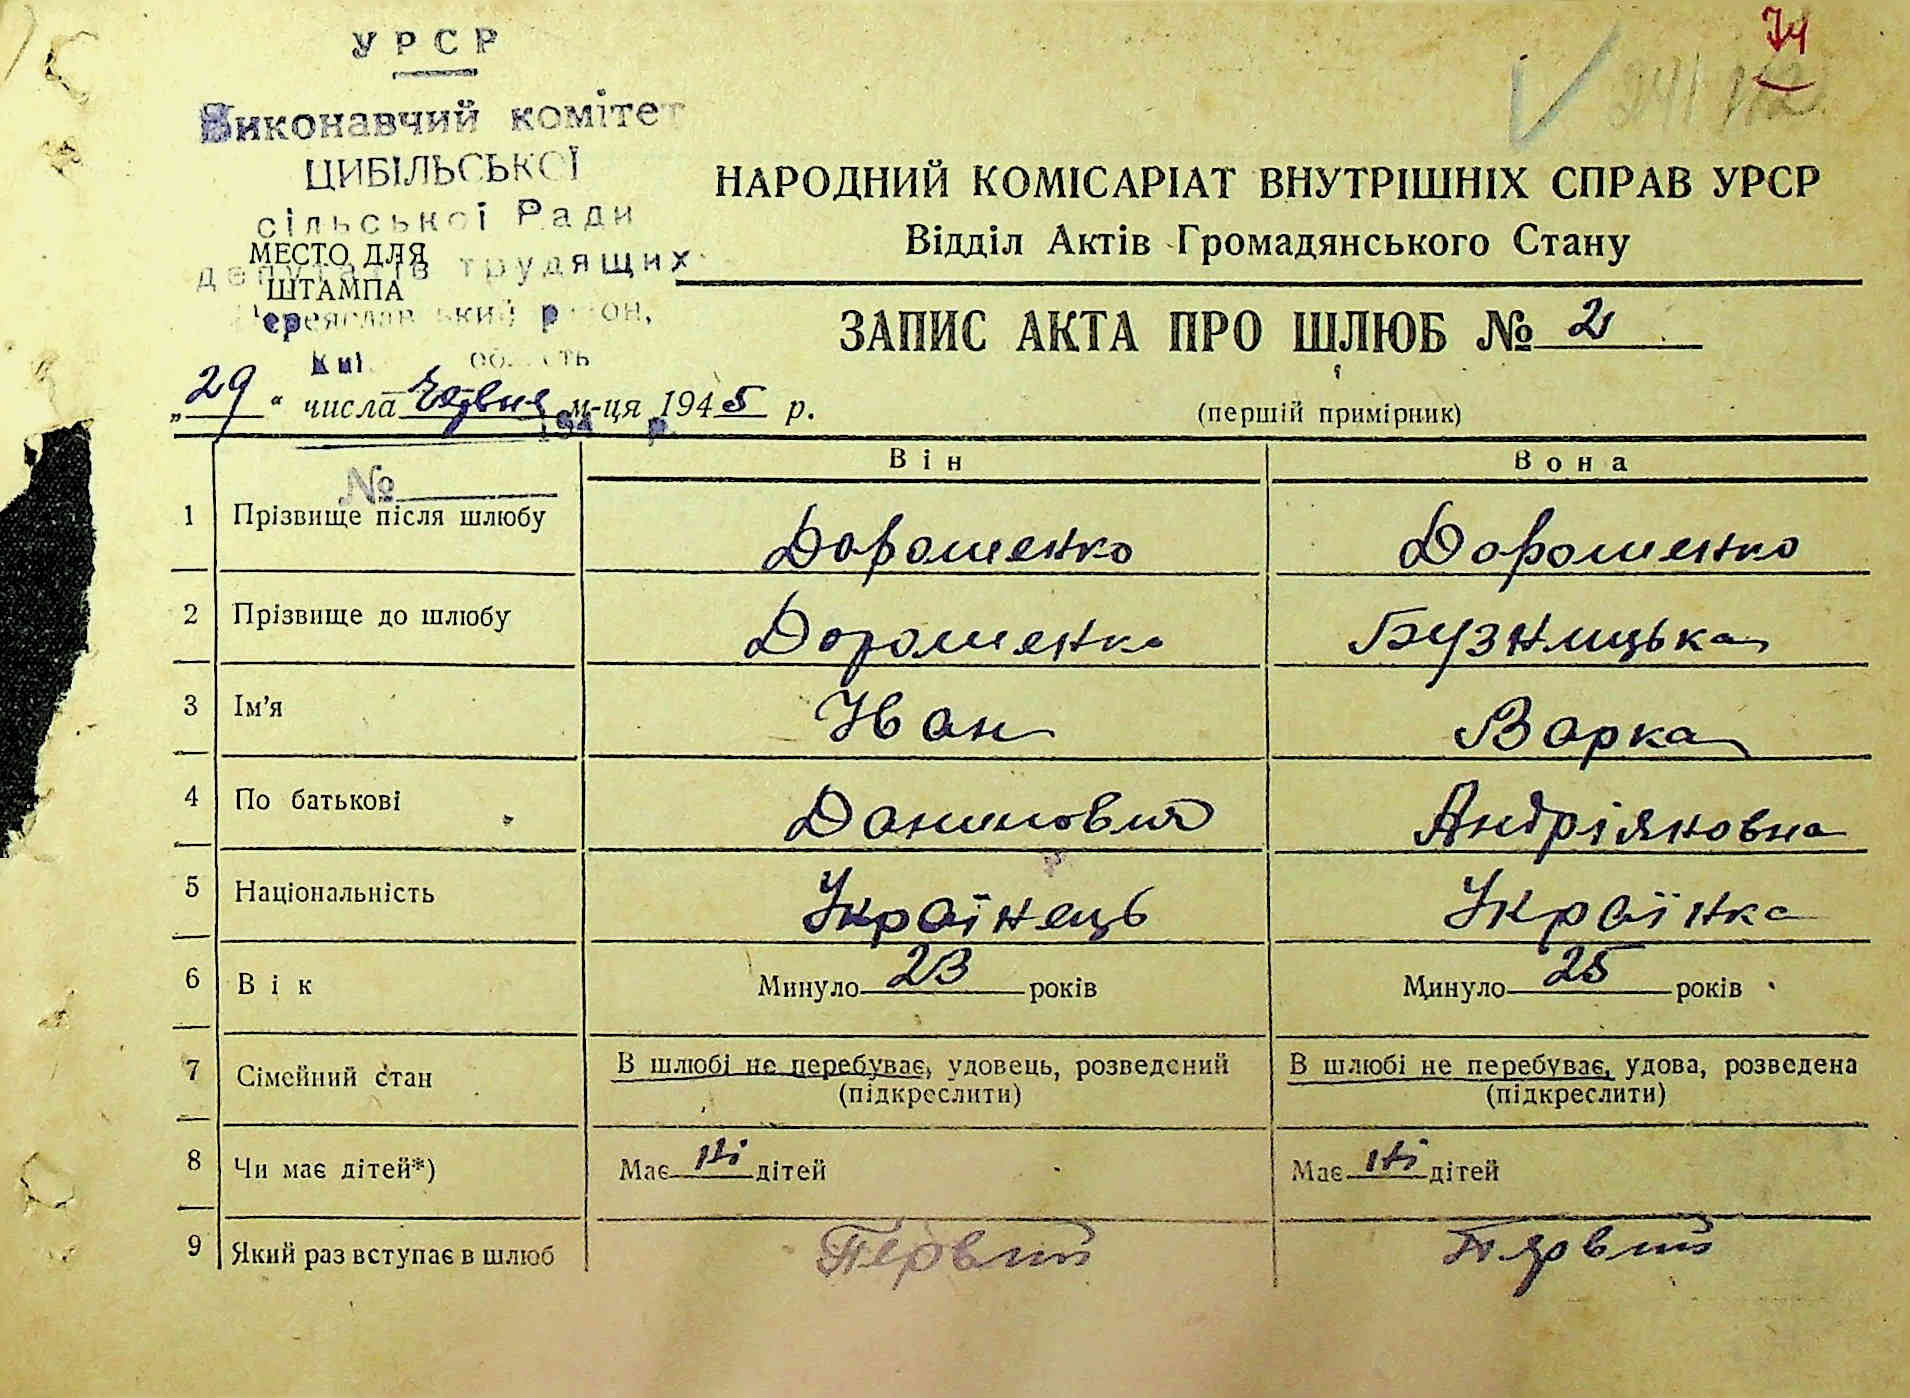 УРСР
Виконавчий комітет
ЦИБІЛЬСЬКОЇ
сільської Ради
МЕСТО ДЛЯ
депутатів трудящих
ШТАМПА
74
НАРОДНИЙ КОМІСАРІАТ ВНУТРІШНІХ СПРАВ УРСР
Відділ Актів Громадянського Стану
ЗАПИС АКТА ПРО ШЛЮБ № 2
(першій примірник)
„29“ числа Червня м-ця 1945 р.
№
Він Вона
1 Прізвище після шлюбу Дорошенко Дорошенко
2 Прізвище до шлюбу Дорошенко Бузницька
3 Ім’я Іван Варка
4 По батькові Данилович Андріяновна
5 Національність Українець Українка
6 Вік Минуло 23 років Минуло 25 років
7 Сімейний стан В шлюбі не перебуває, удовець, розведений В шлюбі не перебуває, удова, розведена
(підкреслити) (підкреслити)
8 Чи має дітей*) Має ні дітей Має ні дітей
9 Який раз вступає в шлюб Первий Первий